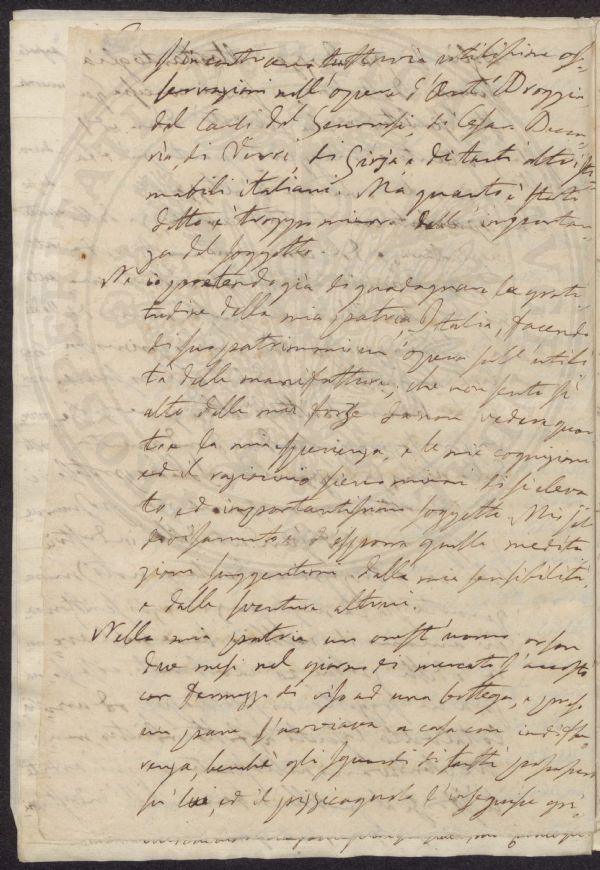 s'incontrano tuttavia utilissime os-
servazioni nell'opere d'Ant. Broggia
del Carli del Genovesi, di Cesare Becca-
ria, di Verri, di Gioja e di tanti altri sti-
mabili italiani. Ma quanto è stato
detto è troppo minore dell'importan-
za del soggetto.
Nè io pretendo già di guadagnare la grati-
tudine della mia patria, l'Italia, facendo
di suo patrimonio un'opera sull'utili-
tà delle manifatture, che non sento sì
alto delle mie forze da non vedere quan-
to la mia sperienza, e le mie cognizioni
ed il raziocinio sieno minori di sì eleva-
to ed importantissimo soggetto. Mio
divisamento è d'esporre quelle medita-
zioni suggeritemi dalla mia sensibilità,
e dalla sventura altrui.
Nella mia patria un onest'uomo or son
due mesi nel giorno di mercato s'accostò
con fermezza di viso ad una bottega, e preso
un pane s'avviava a casa con indiffe-
renza, benchè gli sguardi di tutti posassero
su lui, ed il pizzicagnolo l'inseguisse gri-